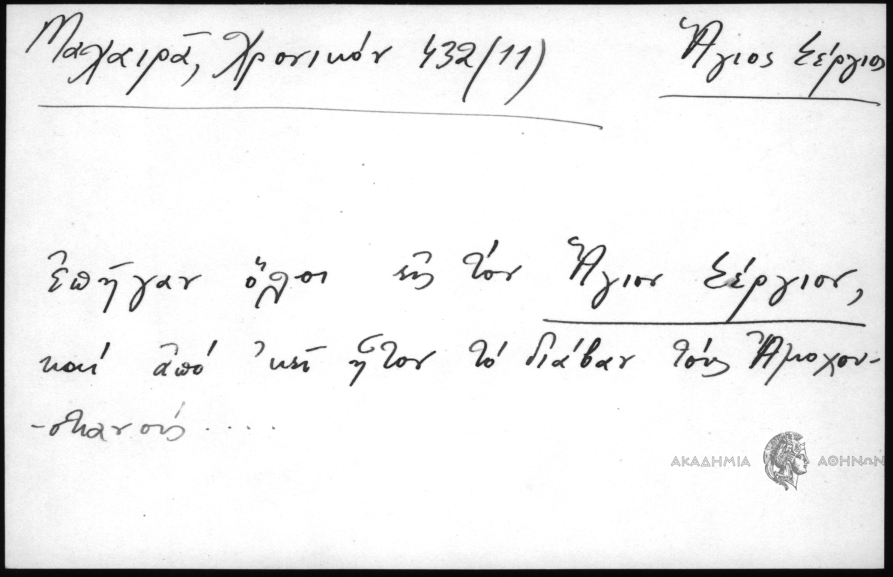 Μαχαιρᾶ, Χρονικόν 432/11) Ἅγιος Σέργιος
ἐπῆγαν ὅλοι εἰς τὸν Ἅγιον Σέργιον,
καὶ ἀπὸ ’κεῖ ἦτον τὸ διάβαν τοὺς Ἀμοχου-
-στιανοὺς ....
ΑΚΑΔΗΜΙΑ ΑΘΗΝΩΝ